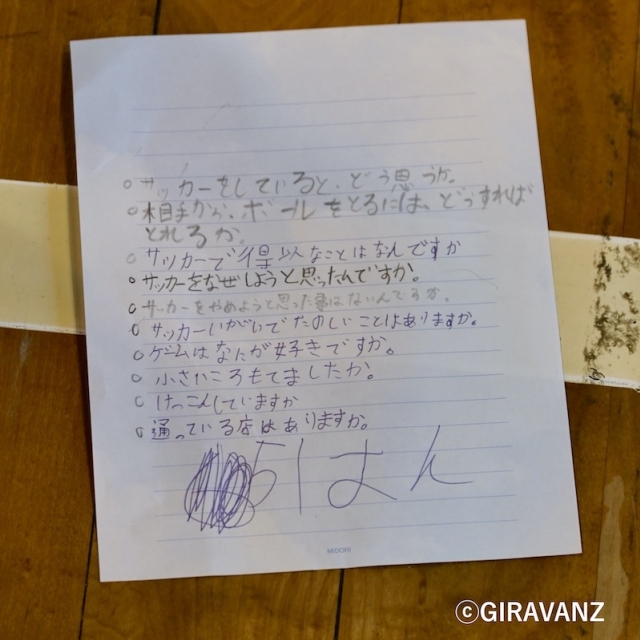 ○サッカーをしていると、どう思うか。
○相手から、ボールをとるには、どうすれば
とれるか。
○サッカーで得以なことはなんですか
○サッカーをなぜしようと思ったんですか。
○サッカーをやめようと思った事はないんですか。
○サッカーいがいでたのしいことはありますか。
○ゲームはなにが好きですか。
○小さいころもてましたか。
○けっこんしていますか
○通っている店はありますか。
5はん
MIDORI
©GIRAVANZ